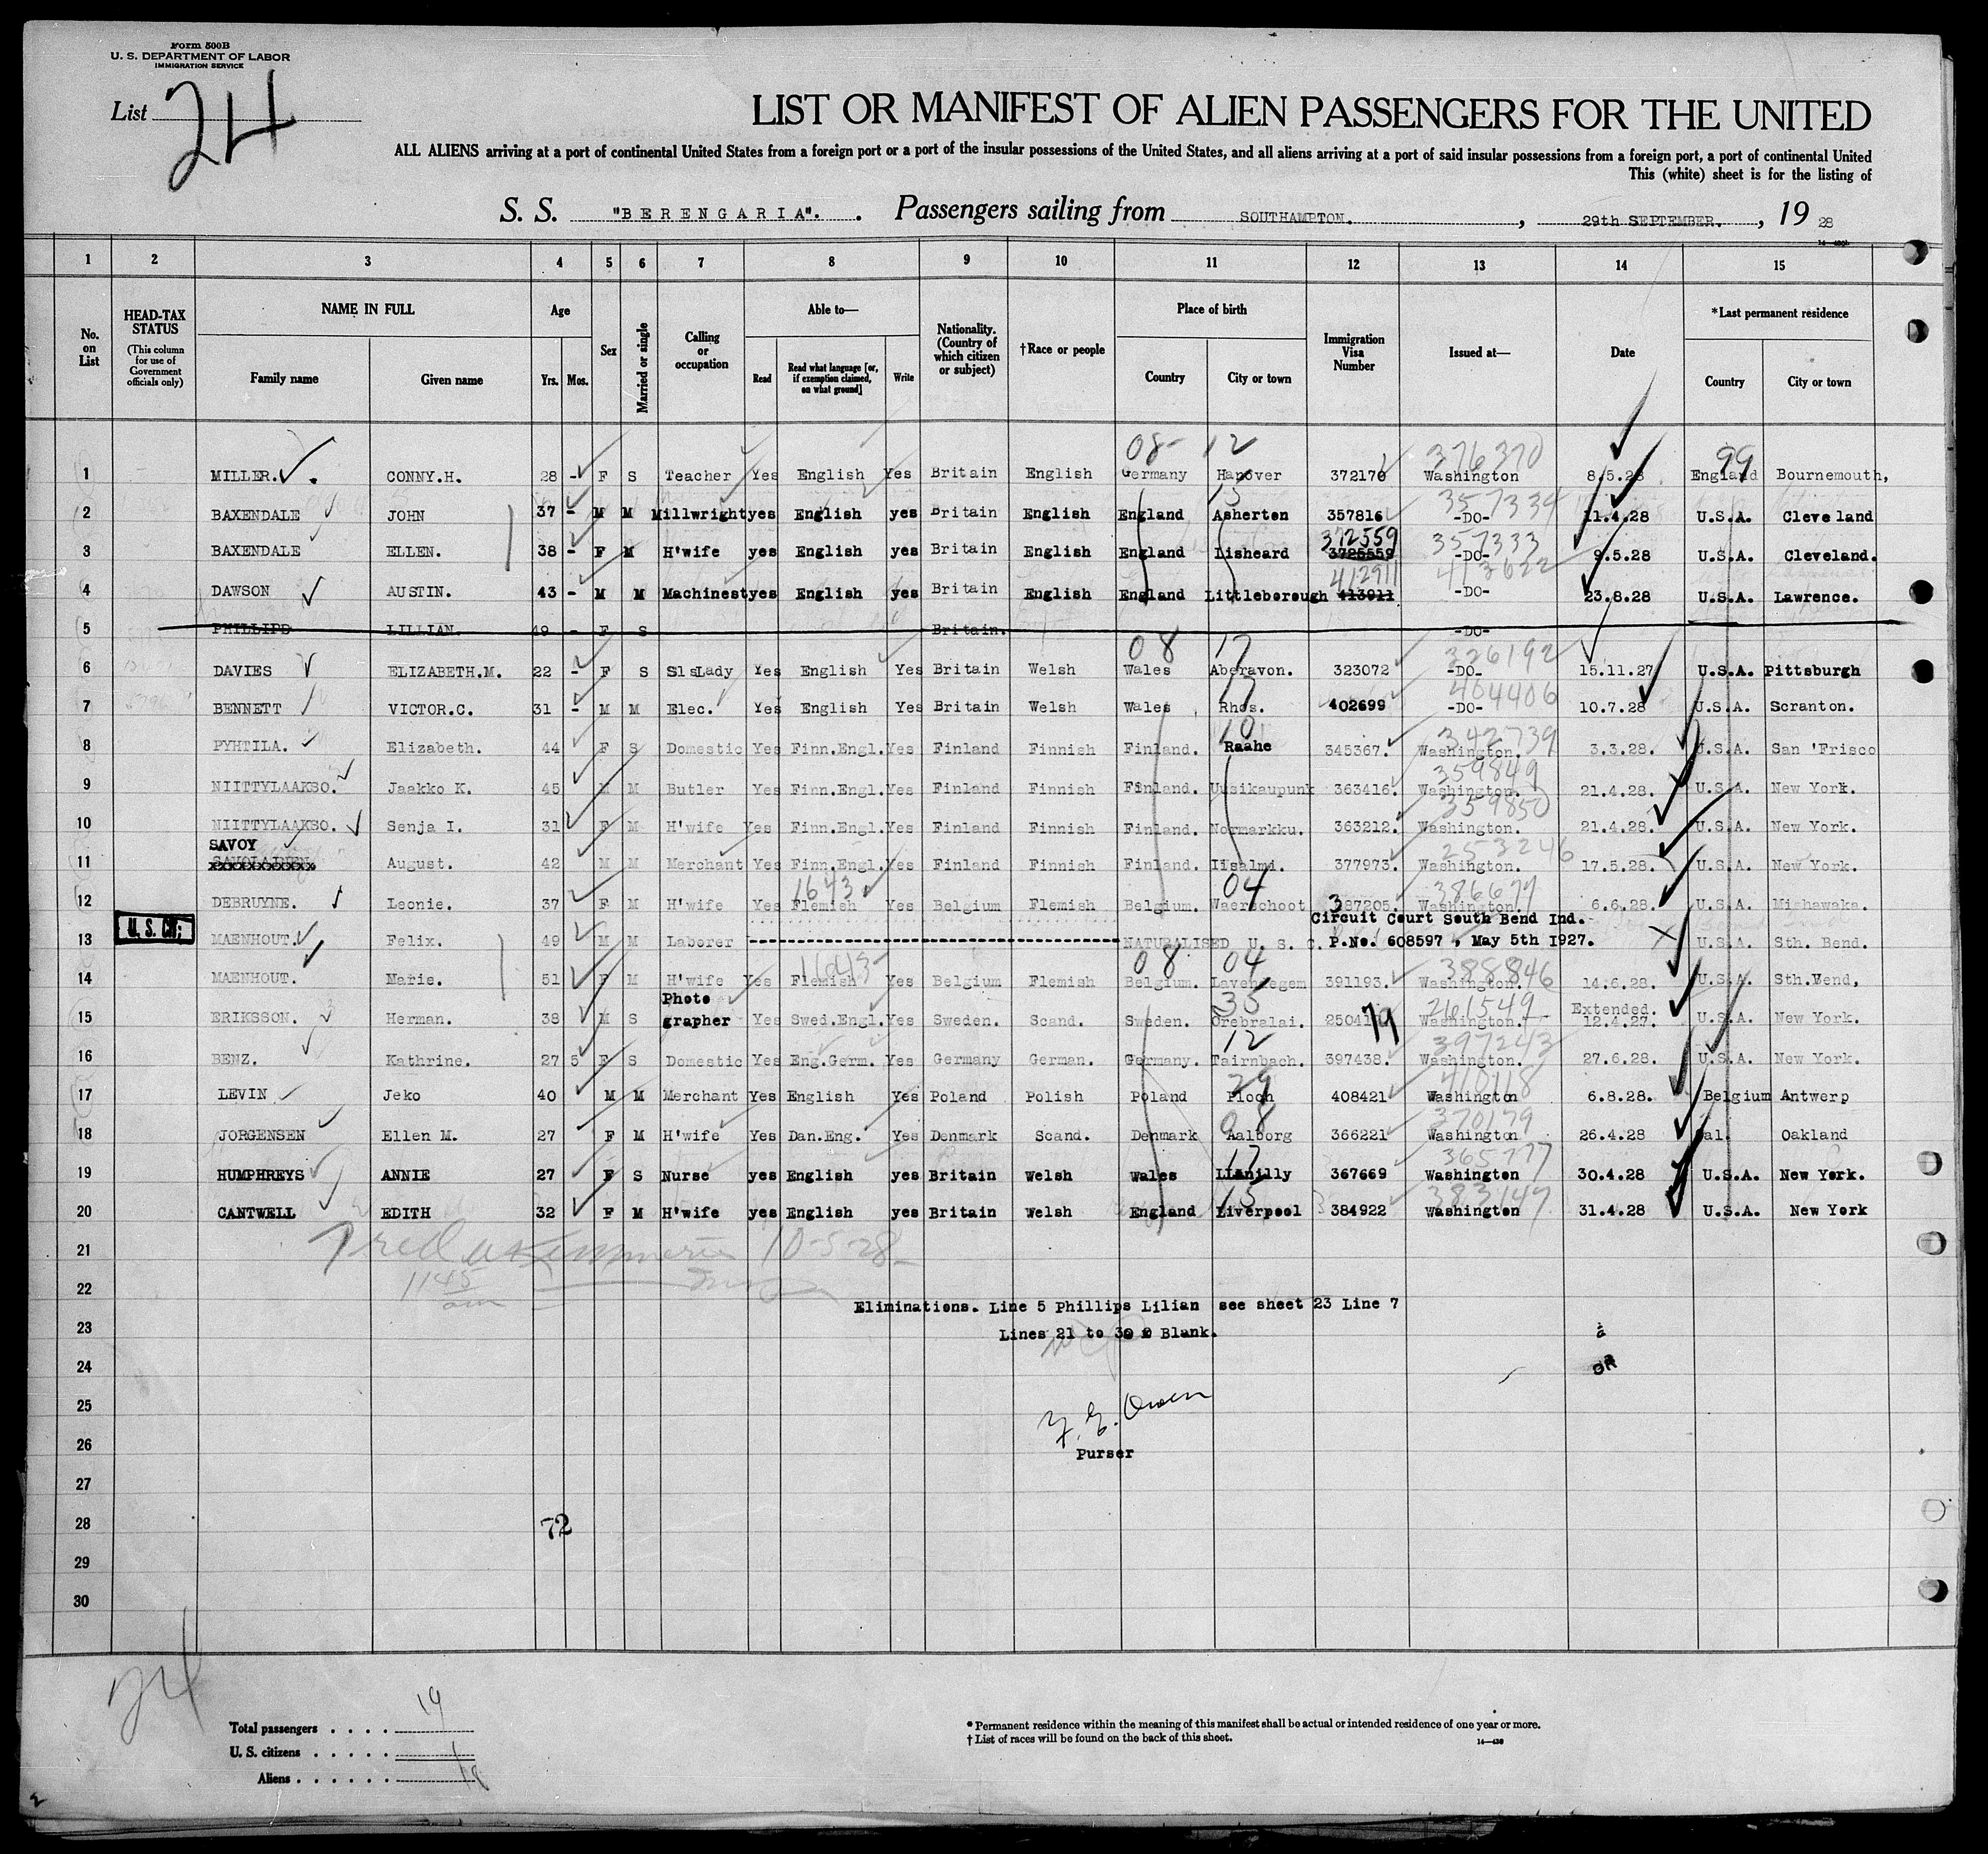 Form 500B
U. S. DEPARTMENT OF LABOR
IMMIGRATION SERVICE
List 24
LIST OR MANIFEST OF ALIEN PASSENGERS FOR THE UNITED
ALL ALIENS arriving at a port of continental United States from a foreign port or a port of the insular possessions of the United States, and all aliens arriving at a port of said insular possessions from a foreign port, a port of continental United
This (white) sheet is for the listing of
S. S. "BERENGARIA". Passengers sailing from SOUTHAMPTON. , 29th SEPTEMBER. , 19 28
1 2 3 4 5 6 7 8 9 10 11 12 13 14 15
No. on List
HEAD-TAX STATUS (This column for use of Government officials only)
NAME IN FULL
Family name Given name
Age
Yrs. Mos.
Sex
Married or single
Calling or occupation
Able to—
Read Read what language [or, if exemption claimed, on what ground] Write
Nationality. (Country of which citizen or subject)
†Race or people
Place of birth
Country City or town
Immigration Visa Number
Issued at—
Date
*Last permanent residence
Country City or town
08- 12 376370 99
1 MILLER. CONNY.H. 28 - F S Teacher Yes English Yes Britain English Germany Hanover 372170 Washington 8.5.28 England Bournemouth,
15 357334
2 BAXENDALE JOHN 37 - M M Millwright yes English yes Britain English England Asherton 357816 -DO- 11.4.28 U.S.A. Cleveland
372559 357333
3 BAXENDALE ELLEN. 38 - F M H'wife yes English yes Britain English England Lisheard 3725559 -DO- 9.5.28 U.S.A. Cleveland.
412911 413622
4 DAWSON AUSTIN. 43 - M M Machinest yes English yes Britain English England Littleborough 413911 -DO- 23.8.28 U.S.A. Lawrence.
5 PHILLIPS LILLIAN. 49 - F S Britain. -DO-
08 17 326192
6 DAVIES ELIZABETH.M. 22 - F S SlsLady Yes English Yes Britain Welsh Wales Aberavon. 323072 -DO- 15.11.27 U.S.A. Pittsburgh
17 404406
7 BENNETT VICTOR.C. 31 - M M Elec. Yes English Yes Britain Welsh Wales Rhos. 402699 -DO- 10.7.28 U.S.A. Scranton.
10 342739
8 PYHTILA. Elizabeth. 44 F S Domestic Yes Finn.Engl. Yes Finland Finnish Finland. Raahe 345367. Washington. 3.3.28. U.S.A. San 'Frisco
359849
9 NIITTYLAAKSO. Jaakko K. 45 M M Butler Yes Finn.Engl. Yes Finland Finnish Finland. Uusikaupunk 363416. Washington. 21.4.28. U.S.A. New York.
359850
10 NIITTYLAAKSO. Senja I. 31 F M H'wife Yes Finn.Engl. Yes Finland Finnish Finland. Normarkku. 363212. Washington. 21.4.28. U.S.A. New York.
SAVOY 253246
11 SAVOLAINEN August. 42 M M Merchant Yes Finn.Engl. Yes Finland Finnish Finland. Iisalmi. 377973. Washington. 17.5.28. U.S.A. New York.
1643 04 386677
12 DEBRUYNE. Leonie. 37 F M H'wife Yes Flemish Yes Belgium Flemish Belgium. Waerschoot 387205. Washington. 6.6.28. U.S.A. Mishawaka.
U.S. Cit; Circuit Court South Bend Ind.
13 MAENHOUT. Felix. 49 M M Laborer NATURALISED U. S. C. P.No. 608597 , May 5th 1927. U.S.A. Sth. Bend.
1643 08 04 388846
14 MAENHOUT. Marie. 51 F M H'wife Yes Flemish Yes Belgium Flemish Belgium. Lavendegem 391193. Washington. 14.6.28. U.S.A. Sth.Bend,
Photo 35 261549 Extended.
15 ERIKSSON. Herman. 38 M S grapher Yes Swed.Engl. Yes Sweden. Scand. Sweden. Orebralai. 250419 Washington. 12.4.27. U.S.A. New York.
12 397243
16 BENZ. Kathrine. 27 5 F S Domestic Yes Eng.Germ. Yes Germany German. Germany. Tairnbach. 397438. Washington. 27.6.28. U.S.A. New York.
29 410118
17 LEVIN Jeko 40 M M Merchant Yes English Yes Poland Polish Poland Ploch 408421 Washington 6.8.28. Belgium Antwerp
08 370179
18 JORGENSEN Ellen M. 27 F M H'wife Yes Dan.Eng. Yes Denmark Scand. Denmark Aalborg 366221 Washington 26.4.28 Cal. Oakland
17 365777
19 HUMPHREYS ANNIE 27 F S Nurse yes English yes Britain Welsh Wales Llanilly 367669 Washington 30.4.28 U.S.A. New York.
15 383147
20 CANTWELL EDITH 32 F M H'wife yes English yes Britain Welsh England Liverpool 384922 Washington 31.4.28 U.S.A. New York
21 10-5-28
22 1145 am
Eliminations. Line 5 Phillips Lilian see sheet 23 Line 7
23 Lines 21 to 30 Blank.
24
25
F. G. Owen
26
Purser
27
28 72
29
30
24
Total passengers . . . . 19
U. S. citizens . . . . . 1
Aliens . . . . . . 18
* Permanent residence within the meaning of this manifest shall be actual or intended residence of one year or more.
† List of races will be found on the back of this sheet.